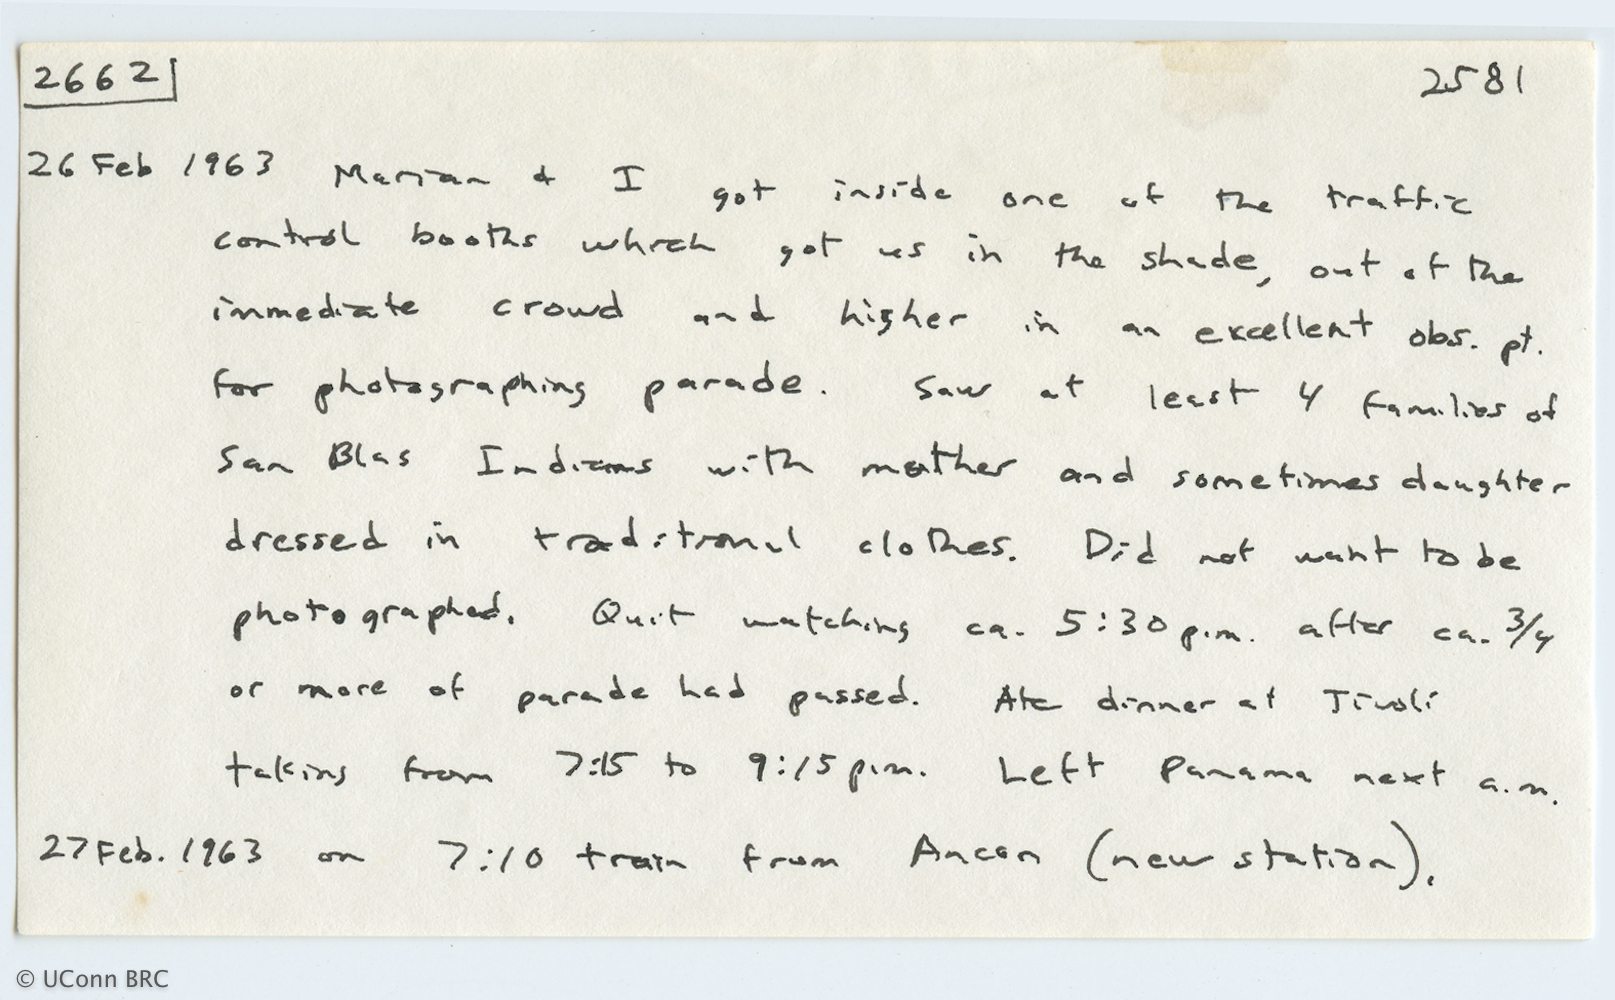 2662 2581
26 Feb 1963 Marian & I got inside one of the traffic
control booths which got us in the shade, out of the
immediate crowd and higher in an excellent obs. pt.
for photographing parade. Saw at least 4 families of
San Blas Indians with mother and sometimes daughter
dressed in traditional clothes. Did not want to be
photographed. Quit watching ca. 5:30 p.m. after ca. 3/4
or more of parade had passed. Ate dinner at Tivoli
taking from 7:15 to 9:15 p.m. Left Panama next a.m.
27 Feb. 1963 on 7:10 train from Ancon (new station).
© UConn BRC